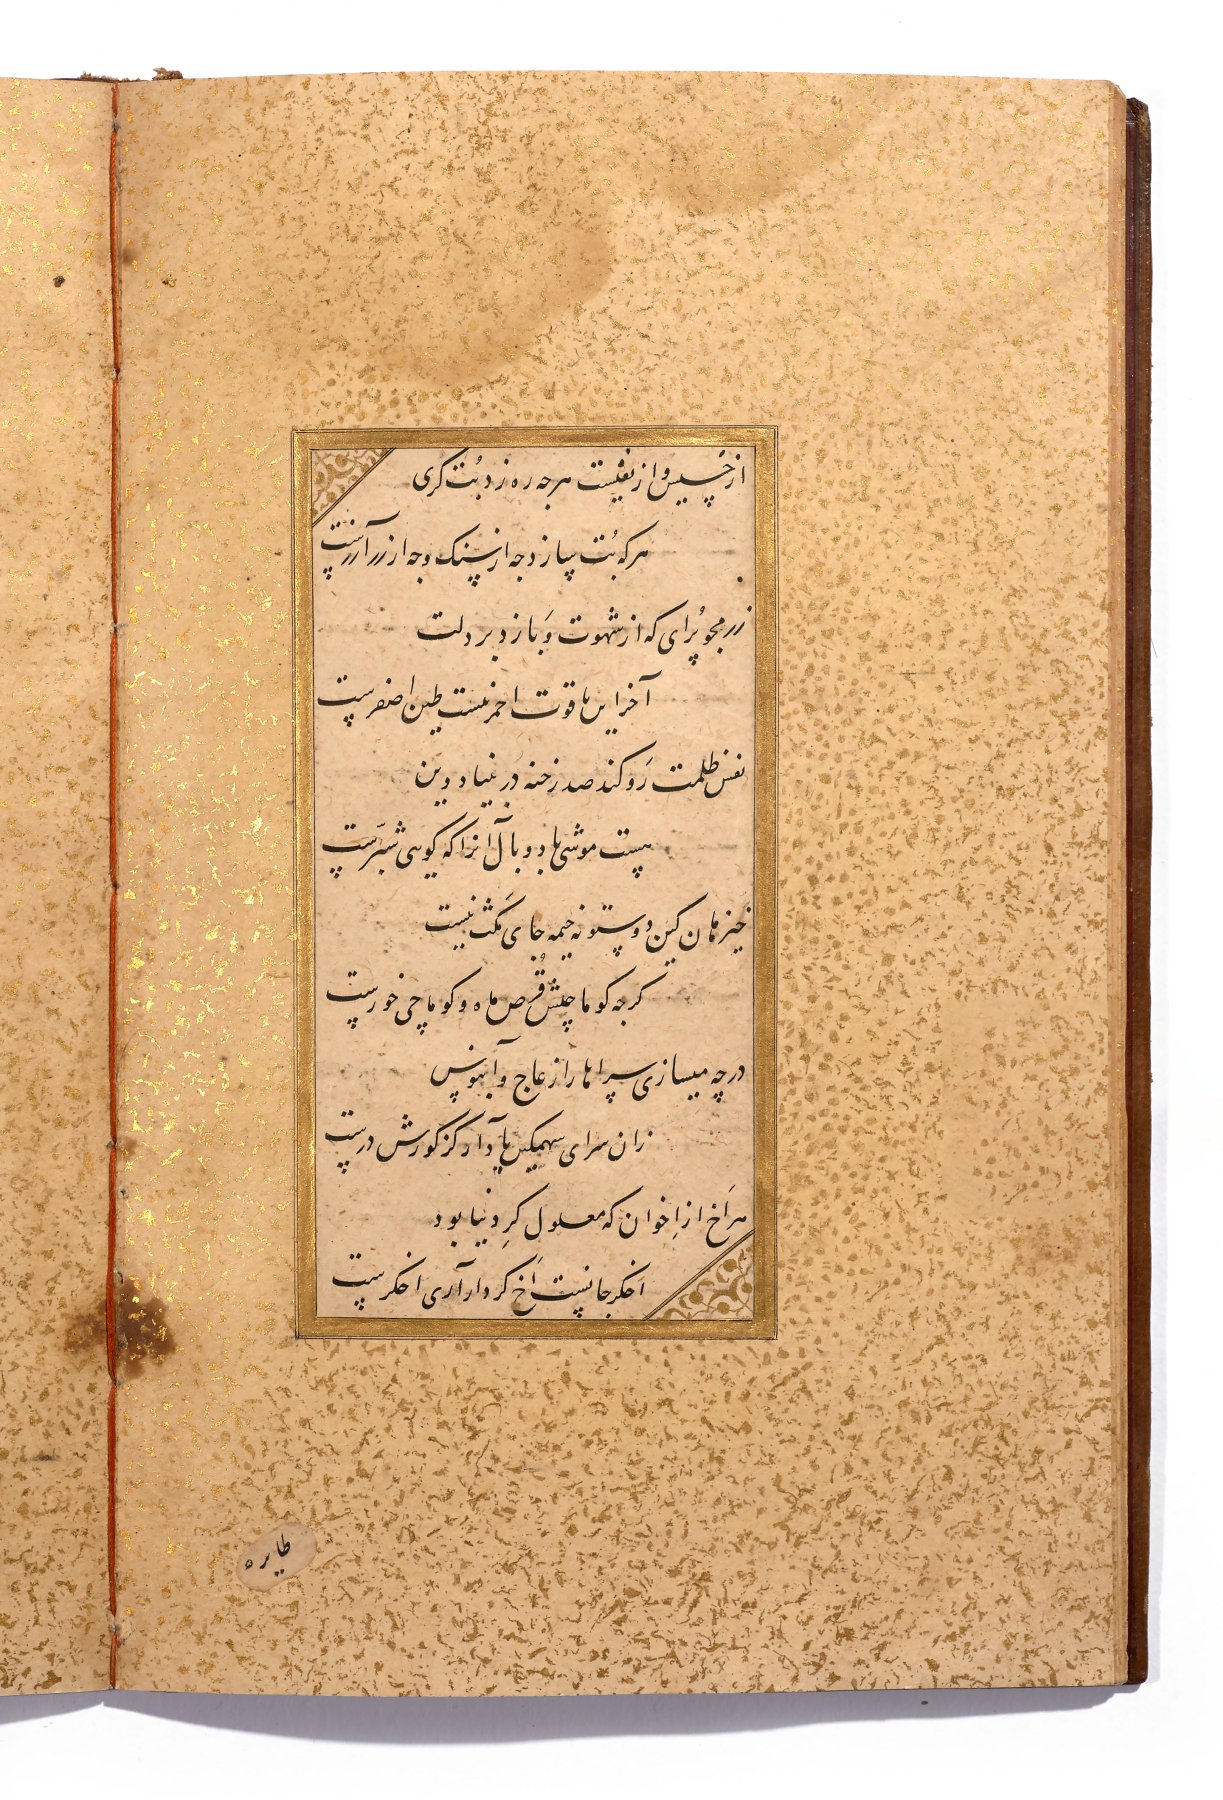 از خسیس و از نفیست هرجه ره زد بُت کری
هرکه بُت سازد جه از سنک و جه از زر آزرست
زر مجو بُرای که از شهوت وَبا زد بر دلت
آخر این یاقوت احمر نیست طین اصفرست
نفس ظلمت رَو کند صد رخنه در بنیاد دین
بست موشی باد و بال آنرا که کویی شبّرست
خیز هان کین دو ستونه خیمه جای مَکث نیست
کرجه کوماجش قُرص ماه و کوماجی خورست
درچه میسازی سراها را ز عاج و آبنوس
زان سرای سهمکین یاد آر کز کورش درست
هر اَخ از اِخوان که معلول کرِ دنیا بود
اخکر جانست اَخ کردار آری اخکرست
طایره